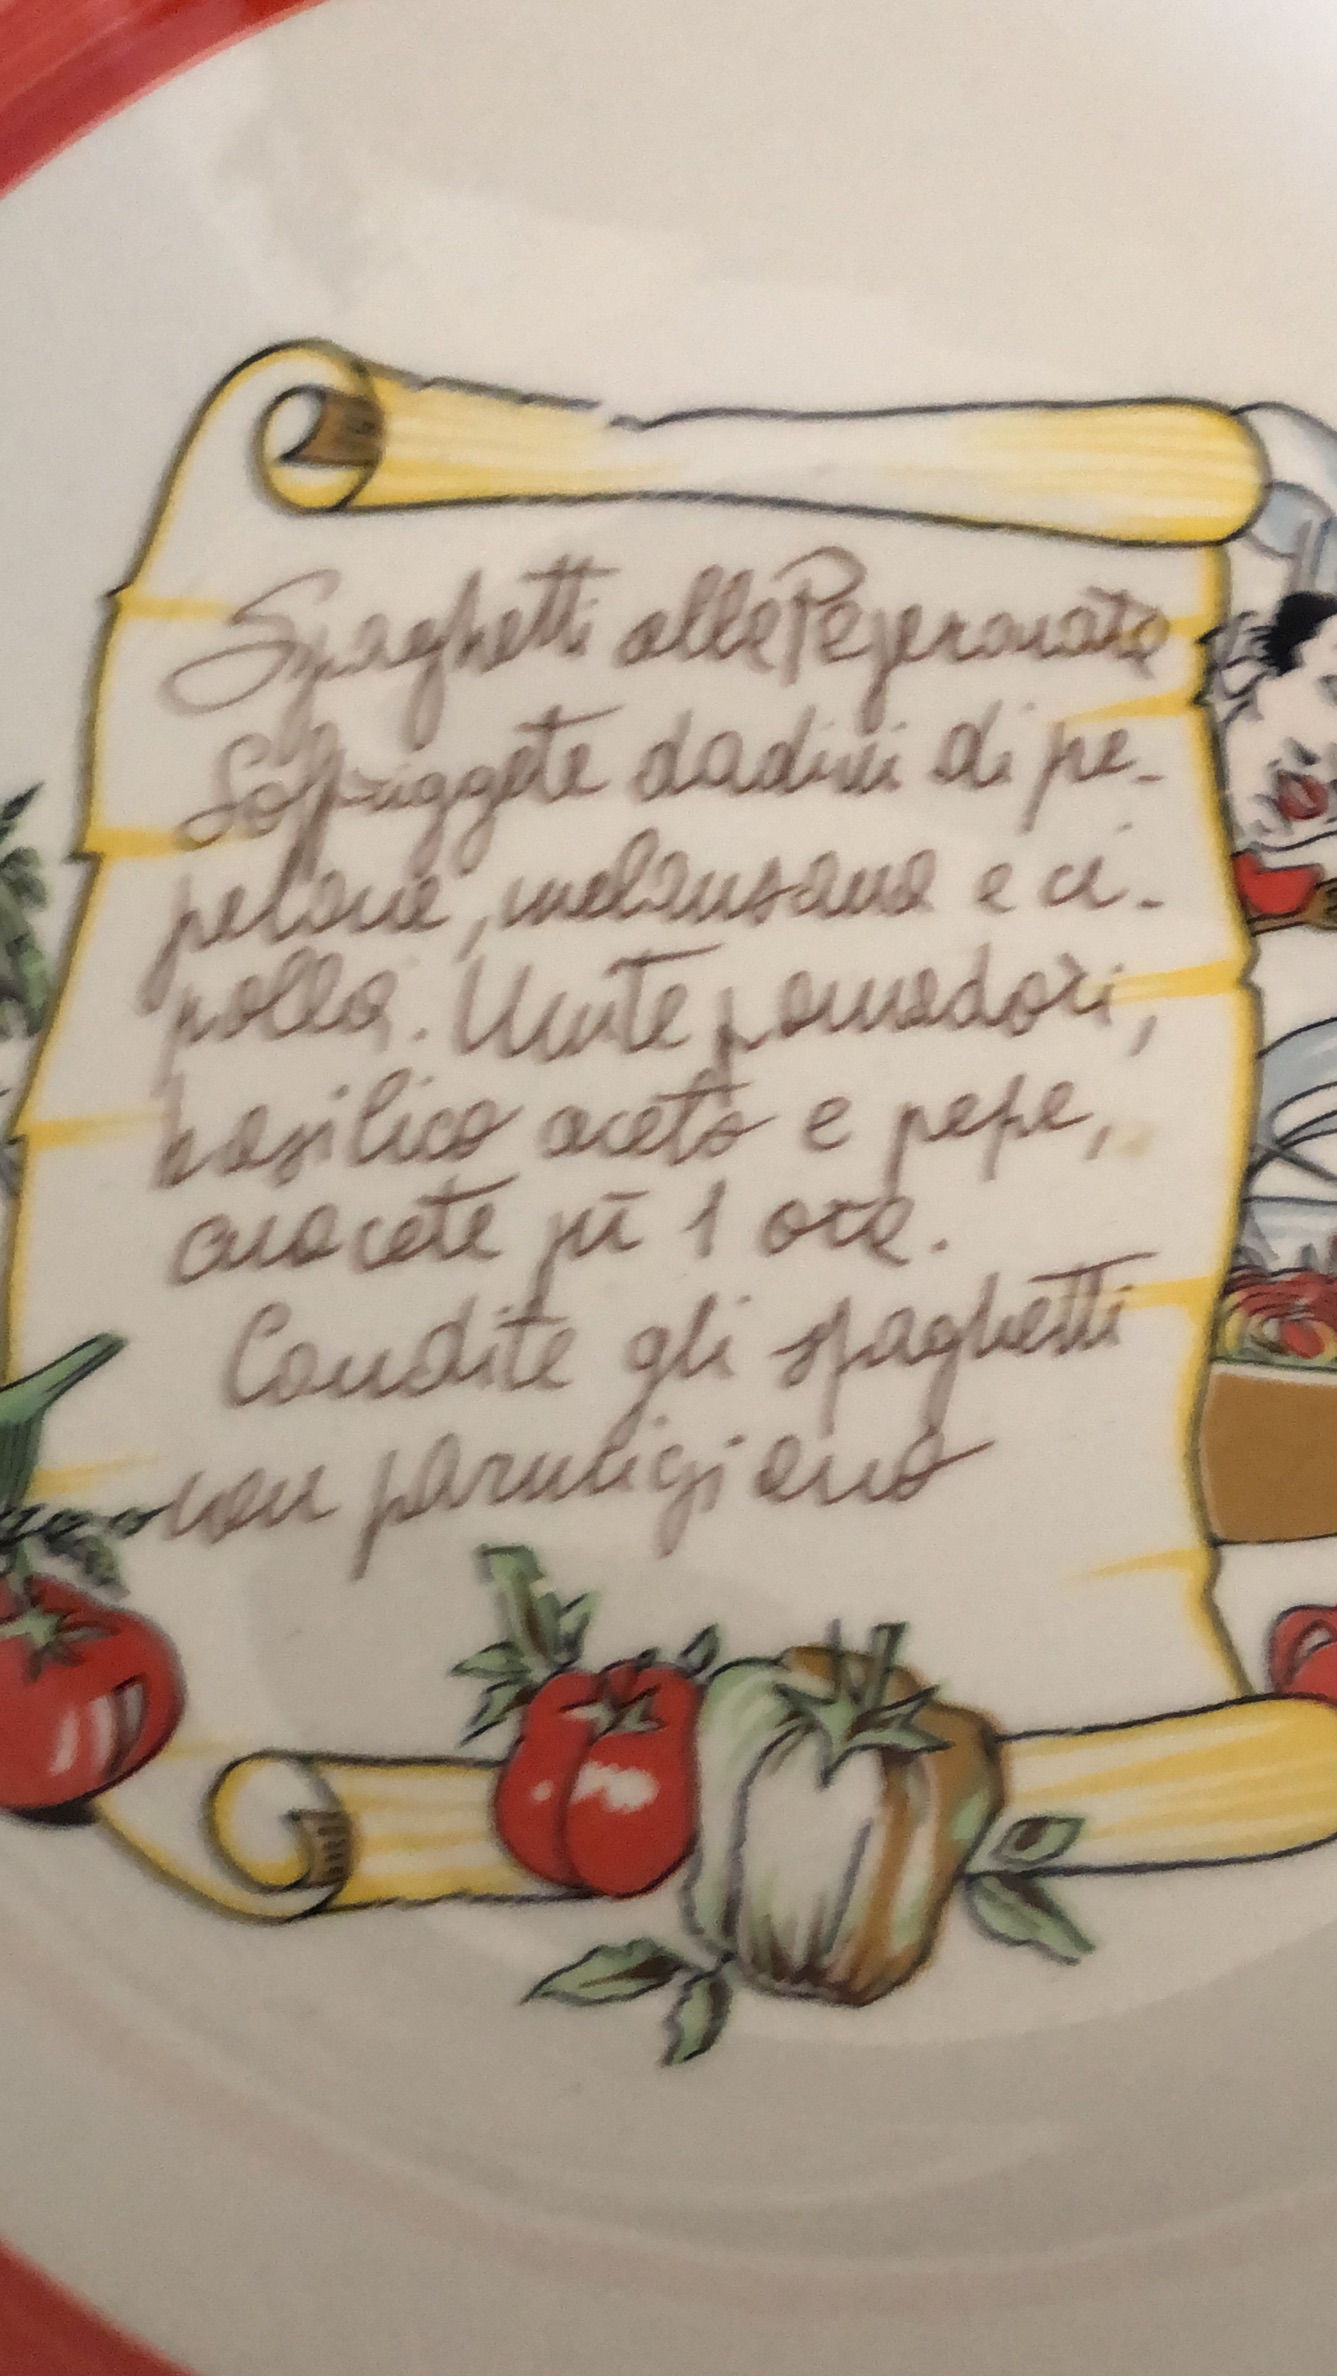 Spaghetti alla Peperonata
Soffriggete dadini di pe-
perone, melanzana e ci-
polla. Unite pomodori,
basilico aceto e pepe,
cuocete più 1 ora.
Condite gli spaghetti
con parmigiano